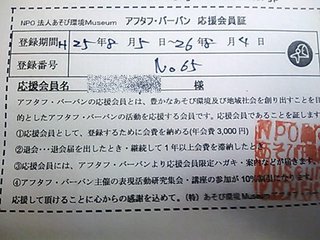 NPO 法人あそび環境Museum アフタフ・バーバン 応援会員証
登録期間 H25年8月5日~26年8月4日
登録番号 No65
応援会員名 様
アフタフ・バーバンの応援会員とは、豊かなあそび環境及び地域社会を創り出すことを目
的としたアフタフ・バーバンの活動を応援する会員です。応援会員であることを証します
①応援会員として、登録するために会費を納める(年会費 3,000 円)
②退会・・退会届を出したとき・継続して1年以上会費を滞納したとき
③応援会員には、アフタフ・バーバンより応援会員限定ハガキ・案内などが届きます。
④アフタフ・バーバン主催の表現活動研究集会・講座の参加が10%割引になります。
応援して頂けることに心からの感謝を込めて。(特)あそび環境Museum
NPO